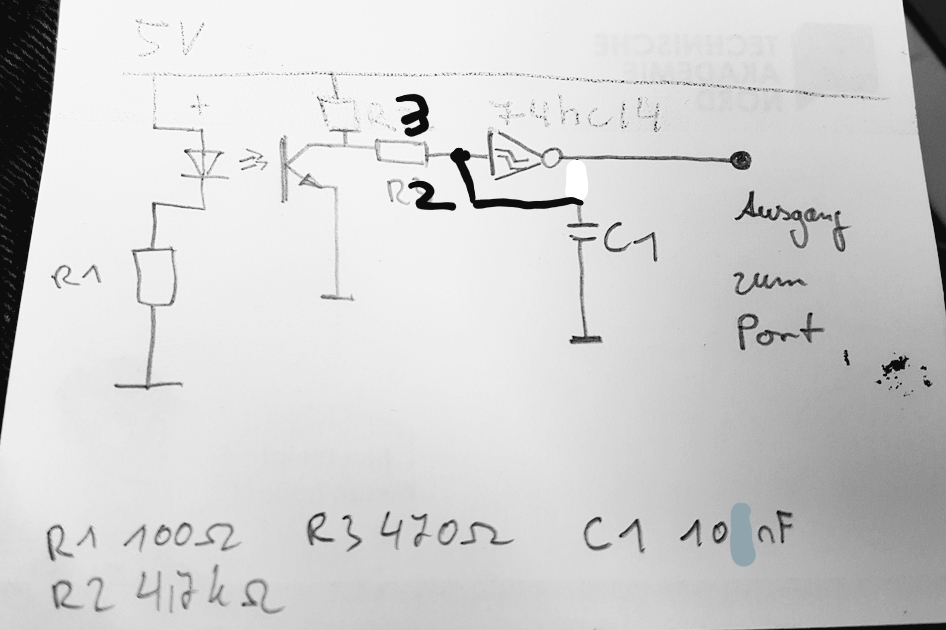 TECHNISCHE
AKADEMIE
NORD
5V
+
R3
74hc14
R2
C1
R1
Ausgang
zum
Port
R1 100Ω R3 470Ω C1 10 nF
R2 4,7kΩ